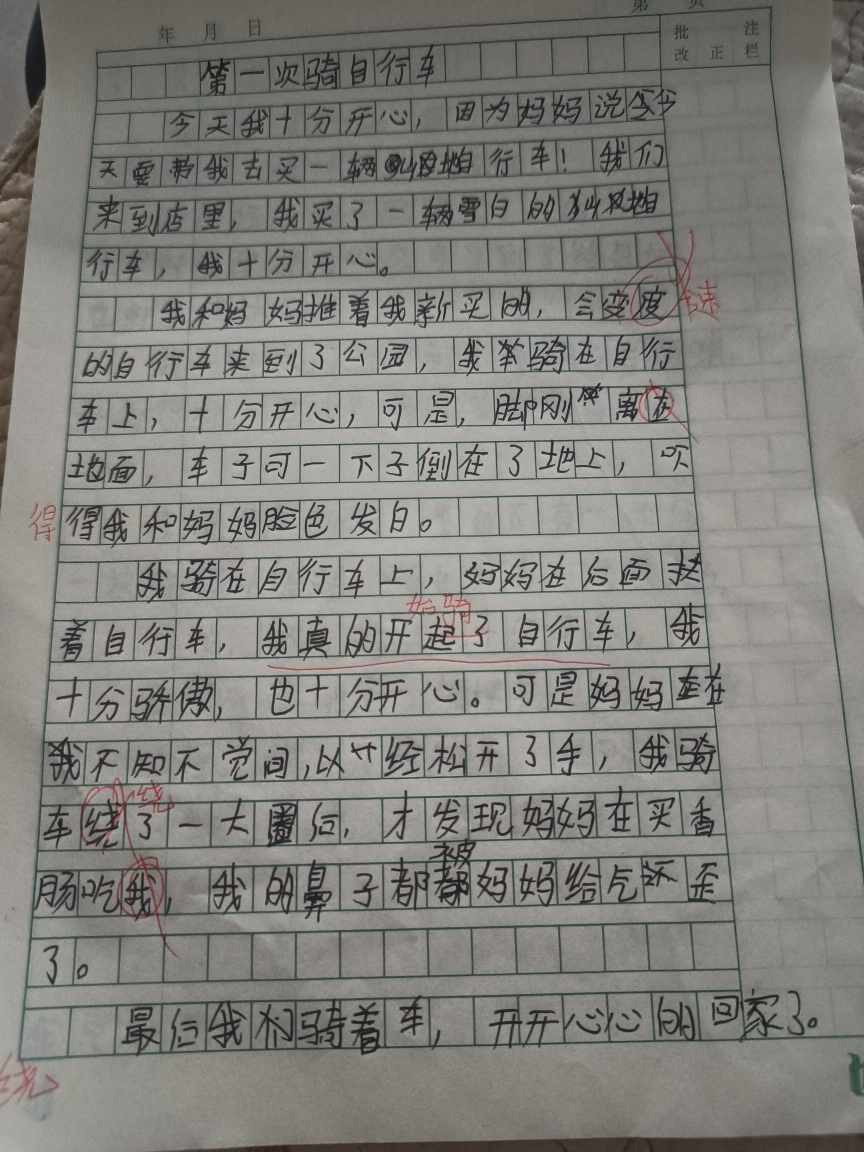 第 页
年 月 日
批 注
改 正 栏
第一次骑自行车
今天我十分开心，因为妈妈说今
天要带我去买一辆自行车！我们
来到店里，我买了一辆雪白的
行车，我十分开心。
我和妈妈推着我新买的，会变度
速
的自行车来到了公园，我骑在自行
车上，十分开心，可是，脚刚离在
地面，车子可一下子倒在了地上，吹
得
得我和妈妈脸色发白。
我骑在自行车上，妈妈在后面扶
始骑
着自行车，我真的开起了自行车，我
十分骄傲，也十分开心。可是妈妈在
我不知不觉间，以经松开了手，我骑
绕
车绕了一大圈后，才发现妈妈在买香
被
肠吃我，我的鼻子都妈妈给气歪
了。
最后我们骑着车，开开心心的回家了。
绕